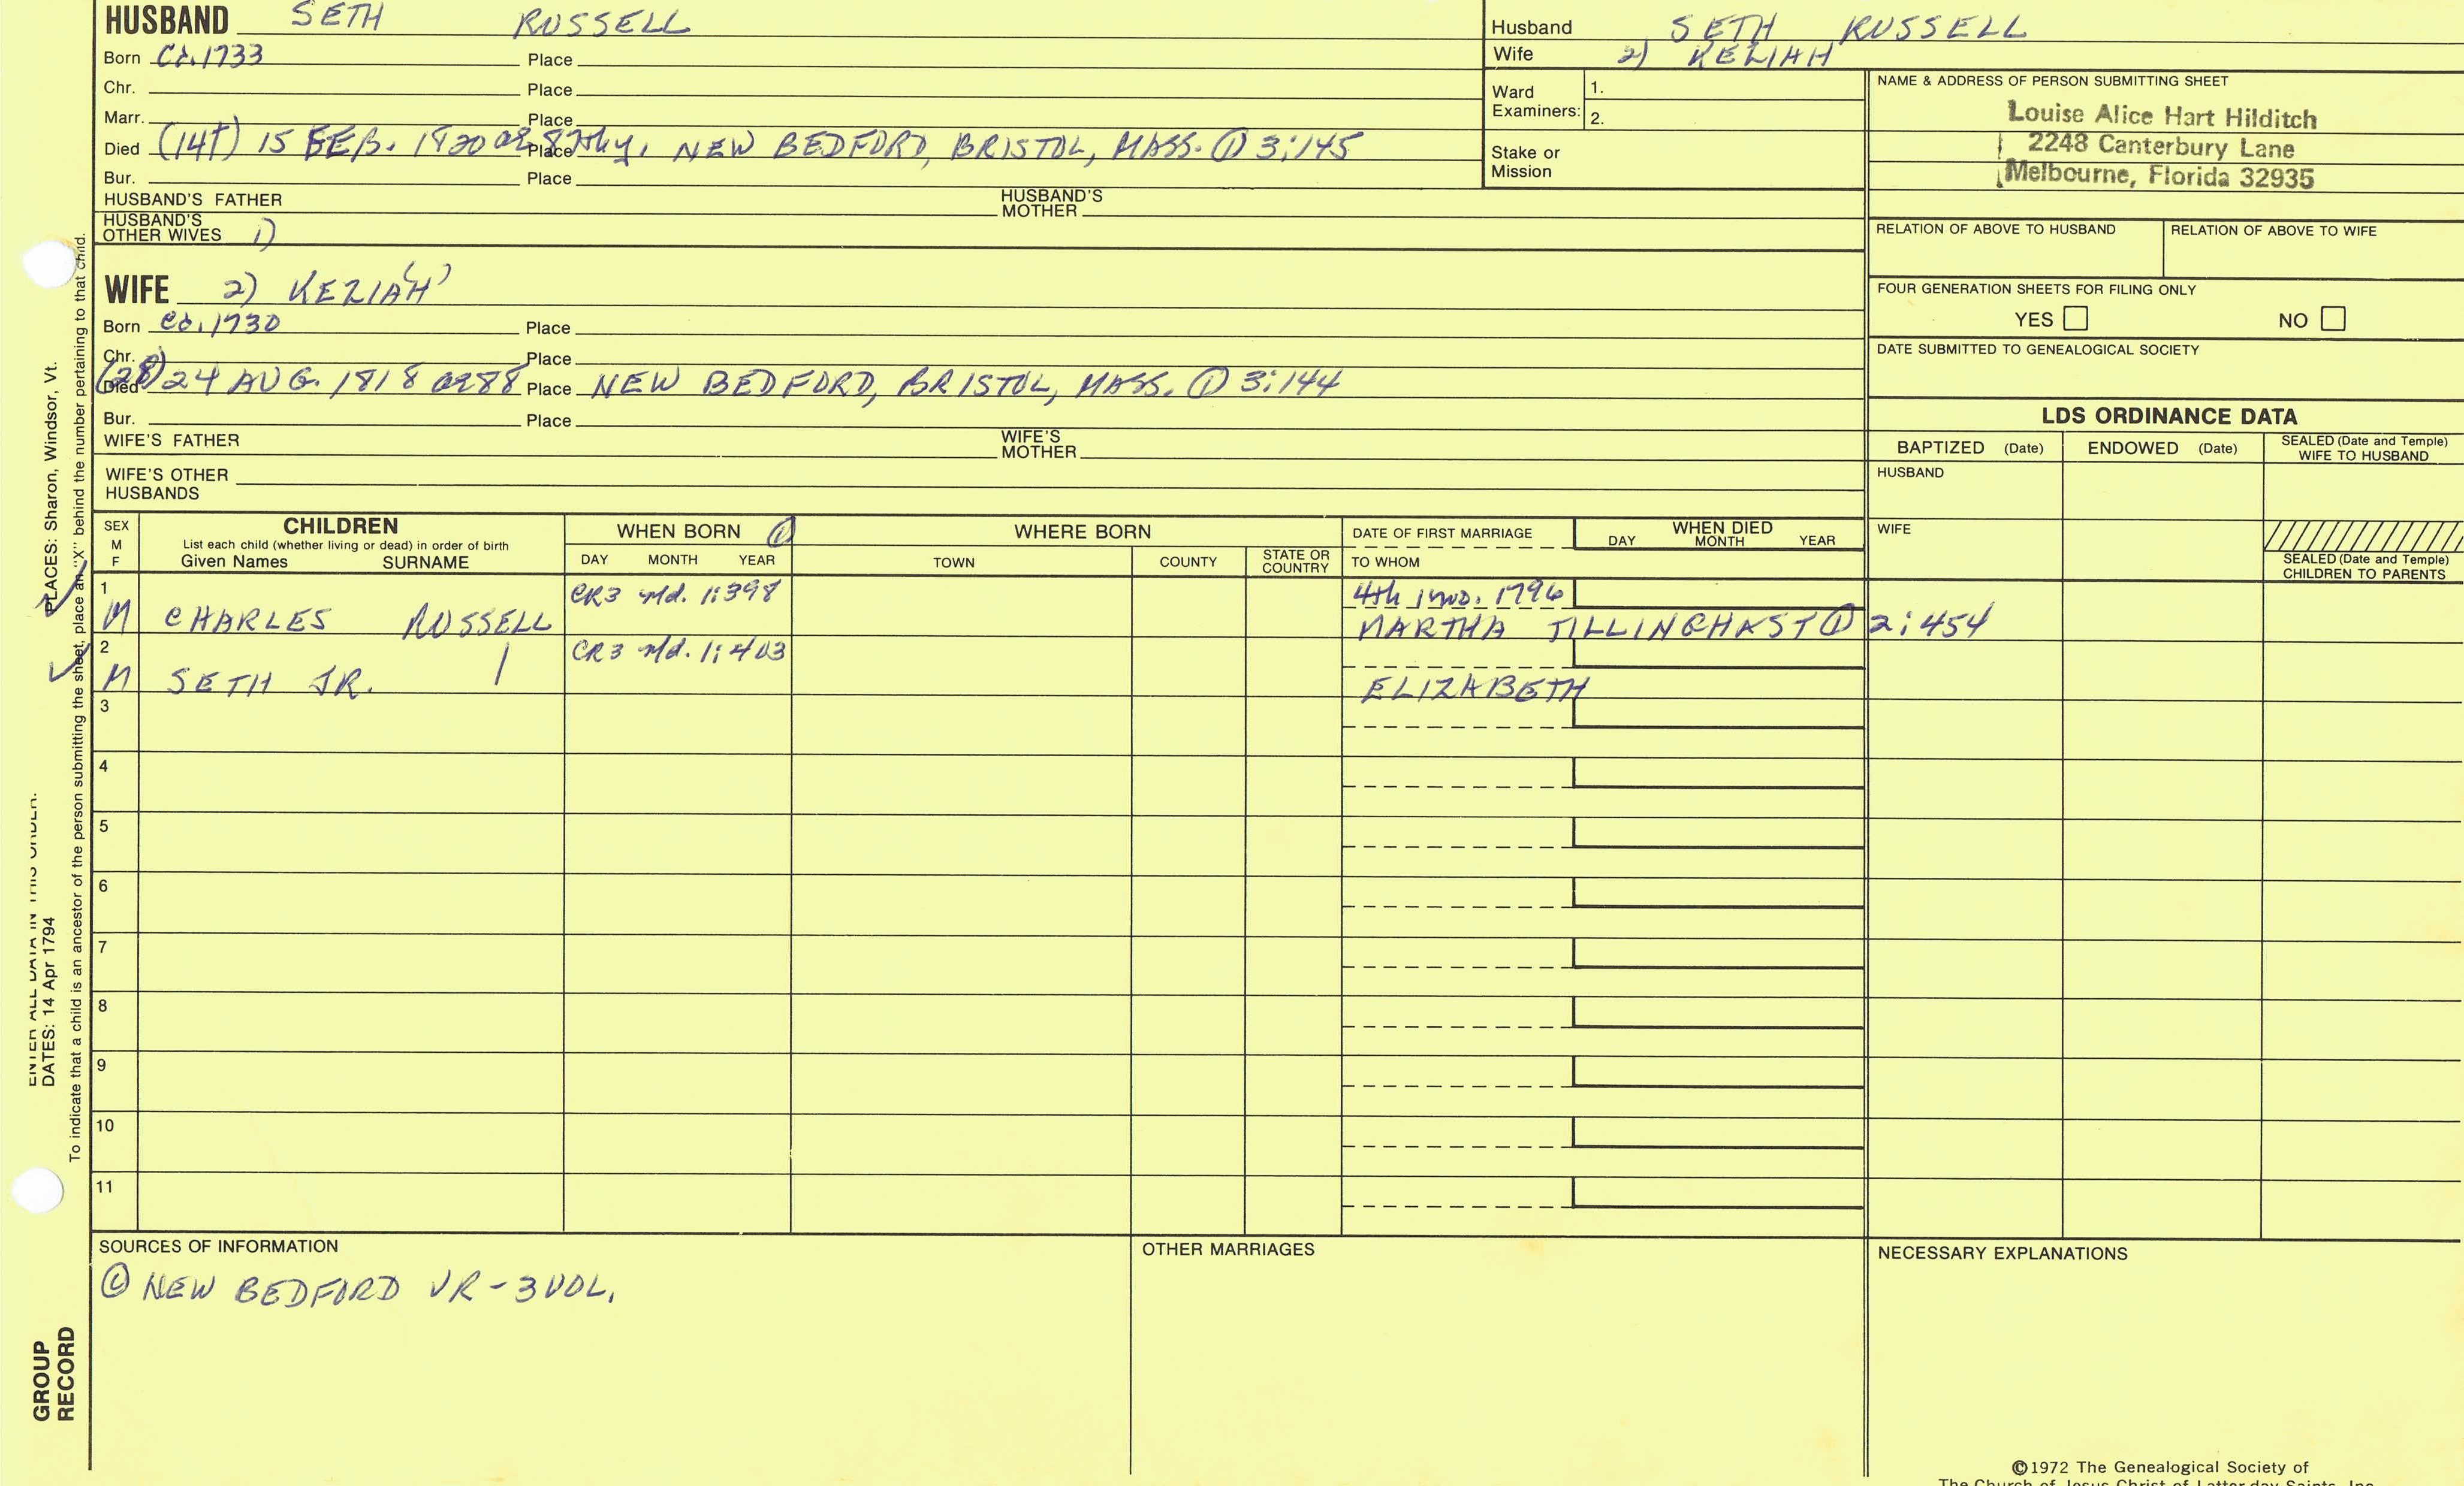 HUSBAND SETH RUSSELL
Born Ca. 1733 Place
Chr. Place
Marr. Place
Died (14th) 15 FEB. 1820 Place NEW BEDFORD, BRISTOL, MASS. ① 3:145
Bur. Place
HUSBAND'S FATHER HUSBAND'S MOTHER
HUSBAND'S OTHER WIVES 1)
WIFE 2) KEZIAH ( )
Born Ca. 1730 Place
Chr. Place
Died (28) 24 AUG. 1818 ae 88 Place NEW BEDFORD, BRISTOL, MASS. ① 3:144
Bur. Place
WIFE'S FATHER WIFE'S MOTHER
WIFE'S OTHER HUSBANDS
Husband SETH RUSSELL
Wife 2) KEZIAH
Ward Examiners: 1.
2.
Stake or Mission
NAME & ADDRESS OF PERSON SUBMITTING SHEET
Louise Alice Hart Hilditch
2248 Canterbury Lane
Melbourne, Florida 32935
RELATION OF ABOVE TO HUSBAND RELATION OF ABOVE TO WIFE
FOUR GENERATION SHEETS FOR FILING ONLY
YES NO
DATE SUBMITTED TO GENEALOGICAL SOCIETY
LDS ORDINANCE DATA
BAPTIZED (Date) ENDOWED (Date) SEALED (Date and Temple) WIFE TO HUSBAND
HUSBAND
WIFE
SEALED (Date and Temple) CHILDREN TO PARENTS
SEX M F
CHILDREN
List each child (whether living or dead) in order of birth
Given Names SURNAME
WHEN BORN ①
DAY MONTH YEAR
WHERE BORN
TOWN COUNTY STATE OR COUNTRY
DATE OF FIRST MARRIAGE
TO WHOM
WHEN DIED
DAY MONTH YEAR
1 CR3 Md. 1:398 4th 1 mo. 1796
M CHARLES RUSSELL MARTHA TILLINGHAST ① 2:454
2 CR3 Md. 1:403
M SETH JR. | ELIZABETH
3
4
5
6
7
8
9
10
11
SOURCES OF INFORMATION
① NEW BEDFORD VR - 3 VOL.
OTHER MARRIAGES
NECESSARY EXPLANATIONS
©1972 The Genealogical Society of
The Church of Jesus Christ of Latter-day Saints, Inc.
ENTER ALL DATA IN THIS ORDER:
DATES: 14 Apr 1794
PLACES: Sharon, Windsor, Vt.
To indicate that a child is an ancestor of the person submitting the sheet, place an "X" behind the number pertaining to that child.
GROUP
RECORD